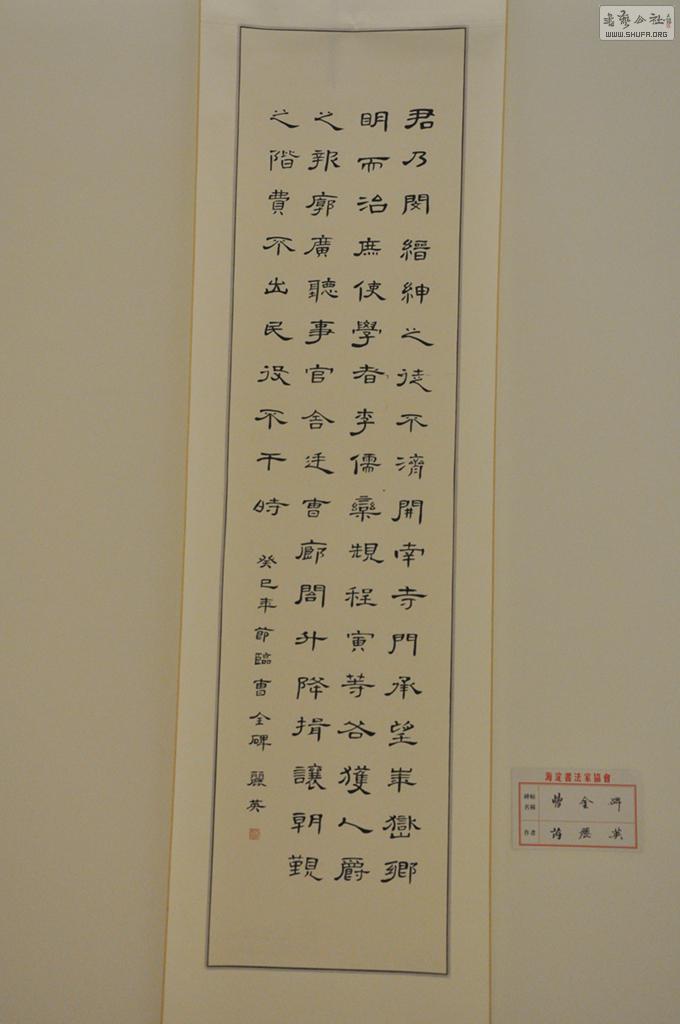 君乃閔縉紳之徒不濟開南寺門承望華嶽鄉
明而治庶使學者李儒欒規程寅等各獲人爵
之報廓廣聽事官舍廷曹廊閤升降揖讓朝覲
之階費不出民役不干時 癸巳年節臨曹全碑 麗英
海淀書法家協會
碑帖名稱 曹全碑
作者 麗英
WWW.SHUFA.ORG